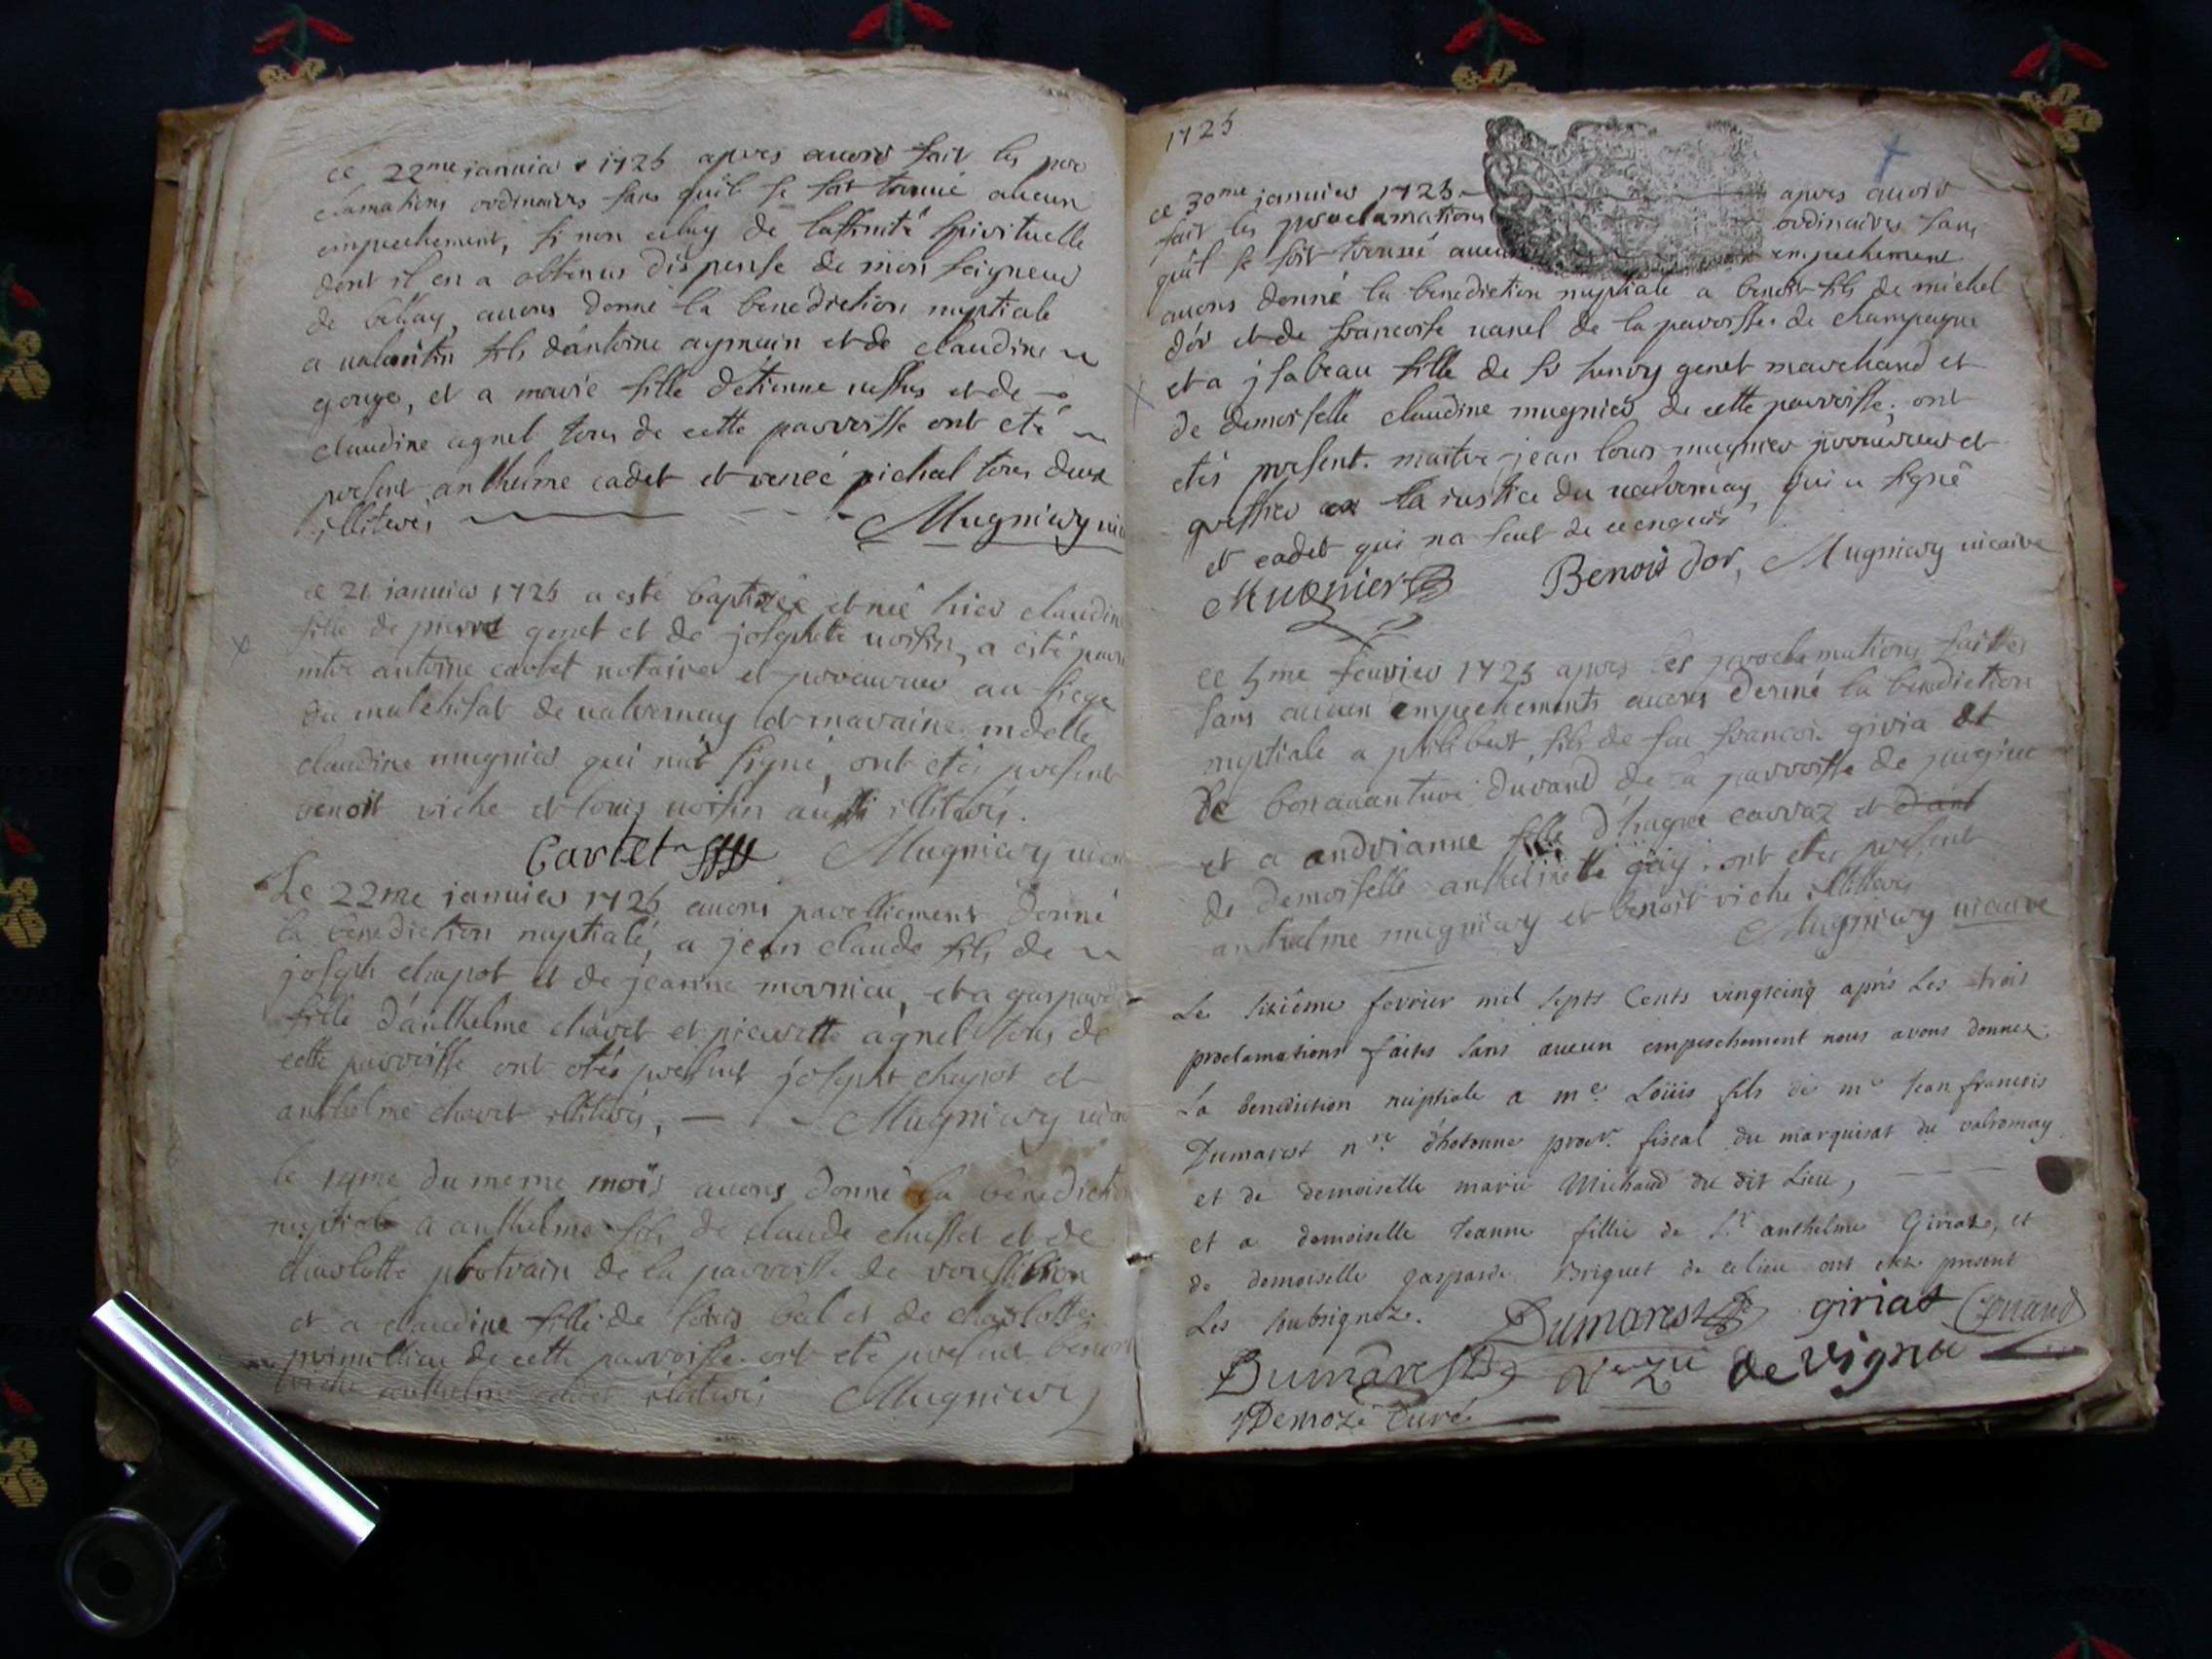 ce 22me januier 1725 apres auoir fait les pro
clamations ordinaires sans quil se soit trouué aucun
empechement, si non celuy de laffinité spirituelle
dont il en a obtenus dispense de mon seigneur
de bellay, auons donné la benediction nuptiale
a ualentin fils dántoine aymain et de claudine
gouge, et a marie fille détienne et de
claudine agnel tous de cette parroisse ont eté
present anthelme cadet et renée pichal tous deux
illiterés Mugniery
ce 21 januier 1725 a esté baptizée et neé hier claudine
fille de pierre genet et de josephte uoisin, a eté
mtre antoine cartet notaire et procureur au siege
du de ualromay et maraine mdelle
claudine mugnier qui nót signé, ont etés present
benoit riche et louis uoisin aussi illiterés.
Cartet Mugniery
Le 22me januier 1725 auons pareillement donné
la benediction nuptiale, a jean claude fils de
joseph chapot et de jeanne mornieu, et a gasparde
fille dánthelme chavet et pierrette agnel tous de
cette parroisse ont etés present joseph chapot et
anthelme chavet illiterés, Mugniery
le du meme mois auons donné la benediction
nuptiale a anthelme fils de claude et de
charlotte de la parroisse de
et a claudine fille de louis bal et de charlotte
de cette parroisse ont eté present benoit
riche anthelme cadet illiterés Mugniery
1725
ce 30me januier 1725 apres auoir
fait les proclamations ordinaires sans
quil se soit trouué aucun empechement
auons donné la benediction nuptiale a benoit fils de michel
dór et de francoise uanel de la parroisse de champagne
et a jsabeau fille de sr henry genet marchand et
de demoiselle claudine mugnier de cette parroisse, ont
etés present. maitre jean louis mugnier procureur et
greffier en la justice du ualromay, qui a signé
et cadet qui na seut de ce enquis
Mugnier Benoit dor, Mugniery uicaire
ce 5me feurier 1725 apres les proclamations faittes
sans aucun empechements auons donné la benediction
nuptiale a philibert, fils de feu francois giria et
de bonauanture durand de la parroisse de pugieu
et a andrianne fille carraz et
de demoiselle anthelmette guy. ont etés present
anthelme mugniery et benoit riche illiterés
Mugniery uicaire
Le sixiême fevrier mil septs Cents vingtcinq aprês Les trois
proclamations faites sans aucun empeschement nous avons donnez
La benediction nuptiale a me. Loüis fils de me Jean francois
Dumarest nre. d'hotonne procr. fiscal du marquisat du valromay
et de demoiselle marie Michaud du dit Lieu,
et a demoiselle Jeanne fillie de sr anthelme Giriat, et
de demoiselle gasparde Briquet de ce lieu ont estés present
Les soubsignéz. Dumarest giriat
Dumarest de vigna
Demozé Curé